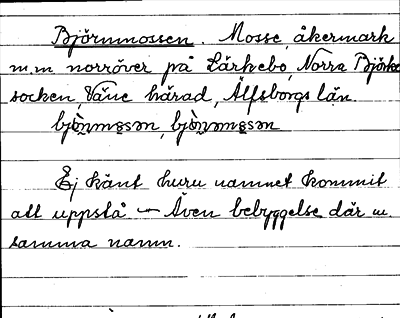 Björnmossen. Mosse, åkermark
m.m norröver på Lärkebo, Norra Björke
socken, Väne härad, Älfsborgs län.
Ej känt huru namnet kommit
att uppstå – Även bebyggelse där m.
samma namn.